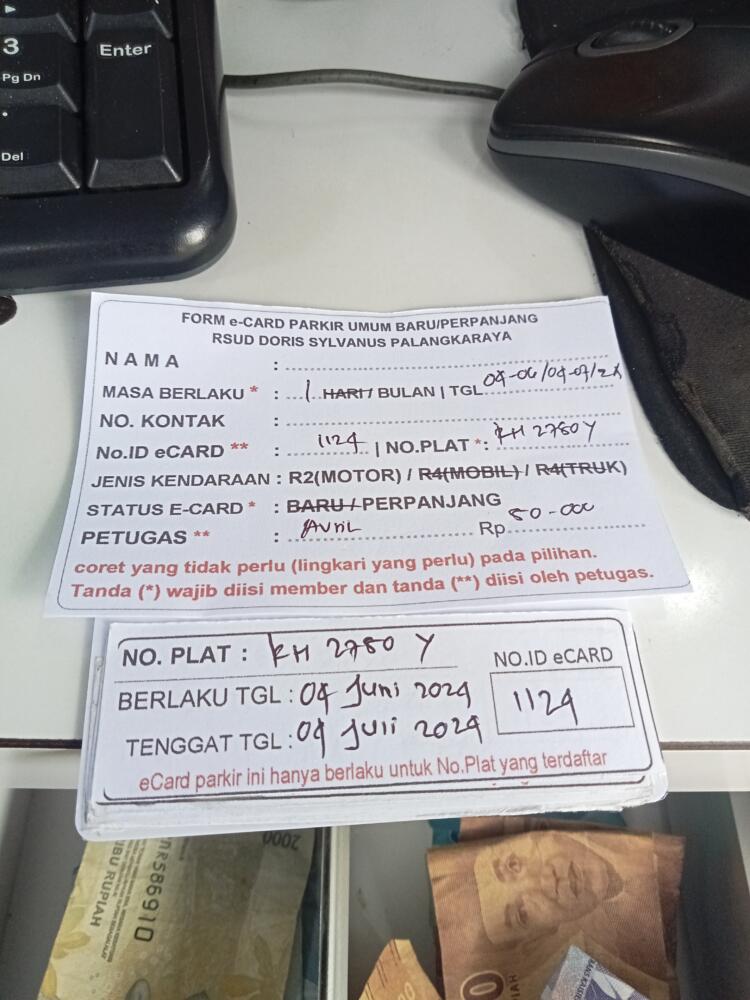 3
Pg Dn
Enter
Del
FORM e-CARD PARKIR UMUM BARU/PERPANJANG
RSUD DORIS SYLVANUS PALANGKARAYA
NAMA :
MASA BERLAKU * : 1 HARI / BULAN | TGL 04-06/04-07/24
NO. KONTAK :
No.ID eCARD ** : 1124 | NO.PLAT *: KH 2780 Y
JENIS KENDARAAN : R2(MOTOR) / R4(MOBIL) / R4(TRUK)
STATUS E-CARD * : BARU / PERPANJANG
PETUGAS ** : Avril Rp 50.000
coret yang tidak perlu (lingkari yang perlu) pada pilihan.
Tanda (*) wajib diisi member dan tanda (**) diisi oleh petugas.
NO. PLAT : KH 2780 Y
NO.ID eCARD
BERLAKU TGL : 04 Juni 2024
1124
TENGGAT TGL : 04 Juli 2024
eCard parkir ini hanya berlaku untuk No.Plat yang terdaftar
2000
UBU RUPIAH
NR586910